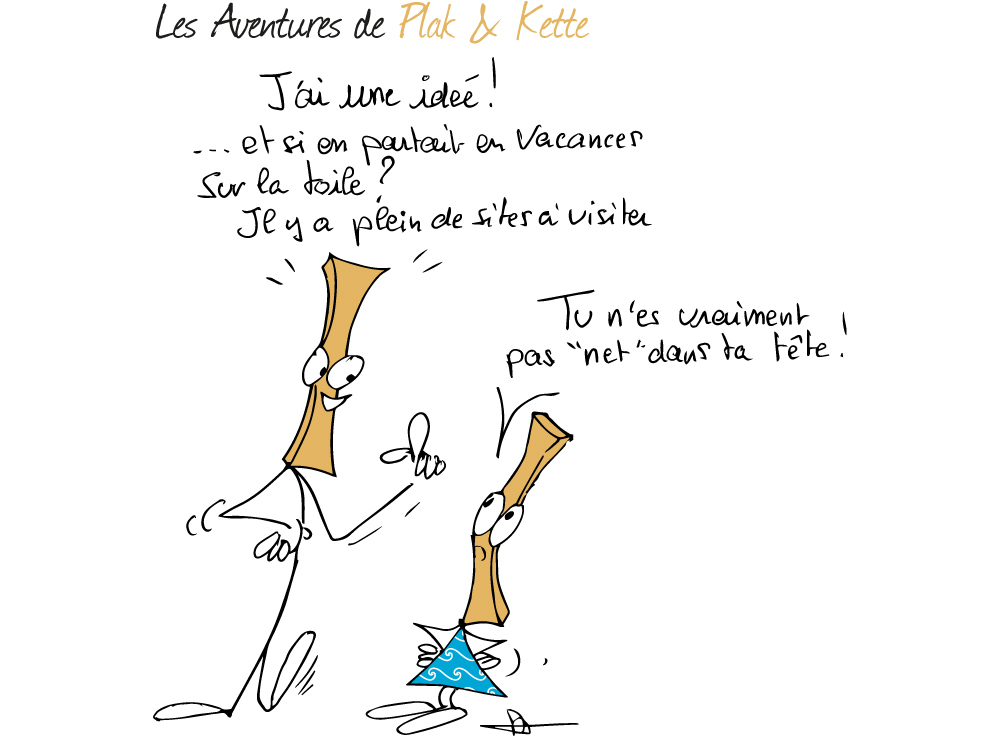 Les Aventures de Plak & Kette
J'ai une ideé!
... et si on partait en vacances
sur la toile?
Il y a plein de sites à visiter
Tu n'es vraiment
pas "net" dans ta tête!